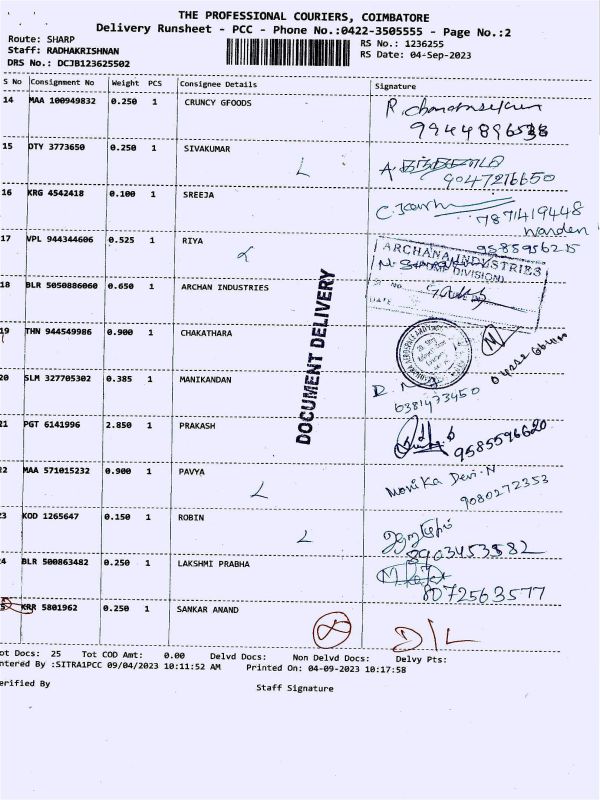 THE PROFESSIONAL COURIERS, COIMBATORE
Delivery Runsheet - PCC - Phone No.:0422-3505555 - Page No.:2
Route: SHARP
Staff: RADHAKRISHNAN
DRS No.: DCJB123625502
RS No.: 1236255
RS Date: 04-Sep-2023
S No Consignment No Weight PCS Consignee Details Signature
14 MAA 100949832 0.250 1 CRUNCY GFOODS
15 DTY 3773650 0.250 1 SIVAKUMAR L
9047216650
16 KRG 4542418 0.100 1 SREEJA
7871419448
Warden
17 VPL 944344606 0.525 1 RIYA L
9585956215
ARCHANA INDUSTRIES
DIVISION)
DATE
18 BLR 5050886060 0.650 1 ARCHAN INDUSTRIES
DOCUMENT DELIVERY
19 THN 944549986 0.900 1 CHAKATHARA
20 SLM 327705302 0.385 1 MANIKANDAN
6381473450
21 PGT 6141996 2.850 1 PRAKASH
9585596620
22 MAA 571015232 0.900 1 PAVYA L
Monika Devi.N
9080272353
23 KOD 1265647 0.150 1 ROBIN L
8903453582
24 BLR 500863482 0.250 1 LAKSHMI PRABHA
8072563577
KRR 5801962 0.250 1 SANKAR ANAND D/L
ot Docs: 25 Tot COD Amt: 0.00 Delvd Docs: Non Delvd Docs: Delvy Pts:
ntered By :SITRA1PCC 09/04/2023 10:11:52 AM Printed On: 04-09-2023 10:17:58
erified By Staff Signature